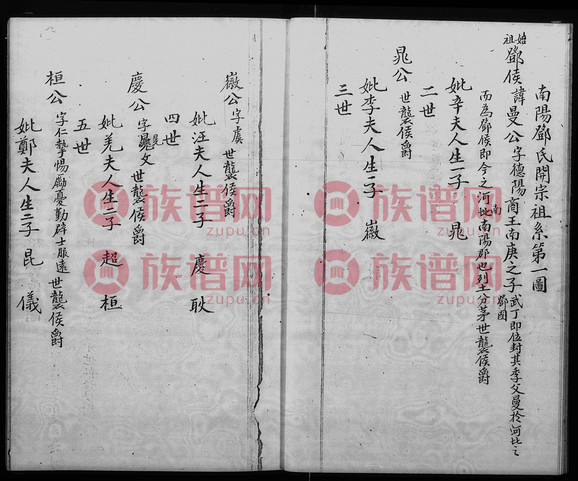 南陽鄧氏開宗祖系第一圖
始祖 鄧侯 諱曼公字德陽商王南庚之子武丁即位封其季父曼於河北之鄧國
而為鄧侯即今之河南南陽郡也列土分茅世襲侯爵
妣辛夫人生一子 晁
二世
晁公 世襲侯爵
妣李夫人生一子 嶶
三世
嶶公 字虞 世襲侯爵
妣汪夫人生二子 慶 耿
四世
慶公 字 文 世襲侯爵
妣羌夫人生二子 超 桓
五世
桓公 字仁摯惕勵憂勤辟士服遠 世襲侯爵
妣鄭夫人生二子 昆 儀
族谱网
zupu.cn
族谱网
zupu.cn
族谱网
zupu.cn
族谱网
zupu.cn